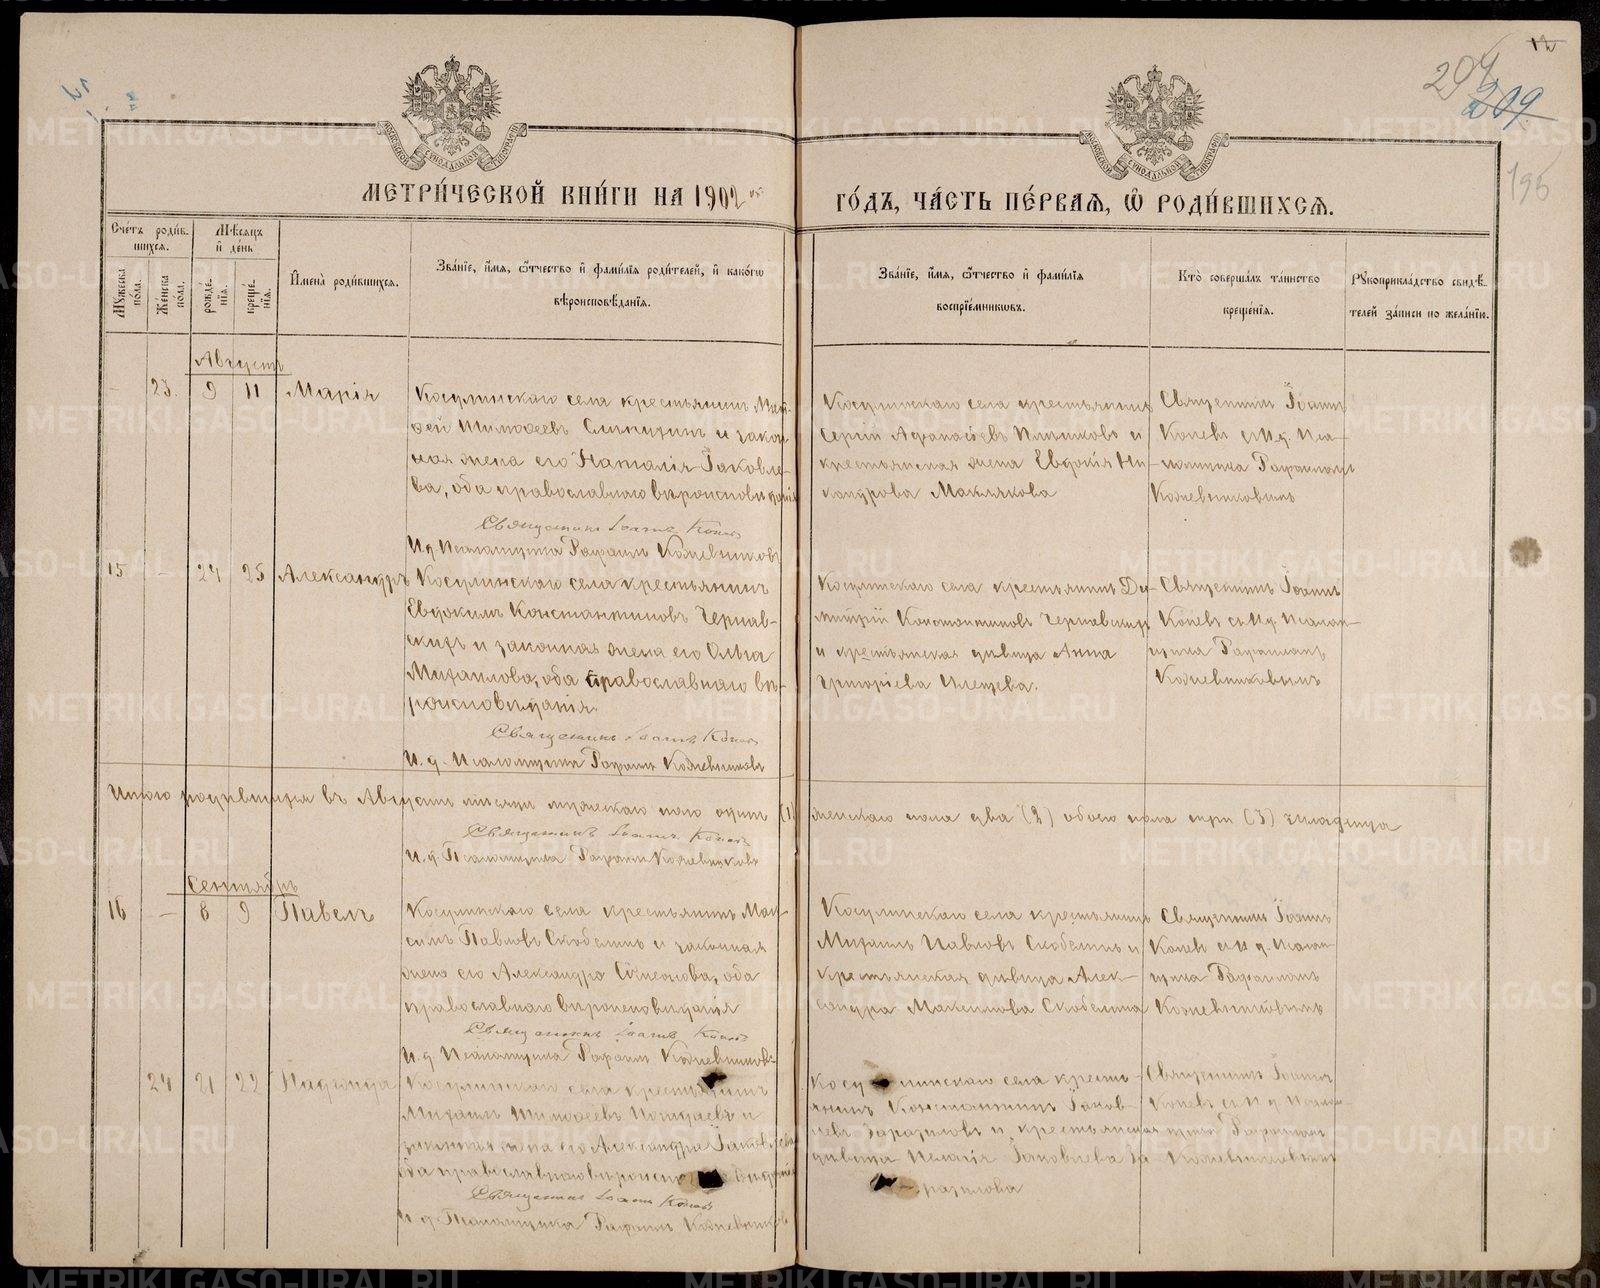 12
204
209
195
МОСКОВСКОЙ СѴНОДАЛЬНОЙ ТИПОГРАФІИ
МОСКОВСКОЙ СѴНОДАЛЬНОЙ ТИПОГРАФІИ
МЕТРИ́ЧЕСКОЙ КНИ́ГИ НА 1902
ГО́ДЪ, ЧА́СТЬ ПЕ́РВАѦ, Ѽ РОДИ́ВШИХСѦ.
Сче́тъ роди́в-
шихся.
Мѣ́сяцъ
и҆ де́нь
Му́жеска по́ла.
Же́нска по́ла.
рожде́-
нїя.
креще́-
нїя.
И҆мена̀ роди́вшихся.
Зва́нїе, и҆́мя, ѻ҆́тчество и҆ фами́лїя роди́телей, и҆ како́гѡ
вѣроисповѣ́данїя.
Зва́нїе, и҆́мя, ѻ҆́тчество и҆ фами́лїя
воспрїе́мникѡвъ.
Кто̀ соверша́лъ та́инство
креще́нїя.
Рꙋкоприкла́дство свидѣ́-
телей за́писи по жела́нїю.
Августъ
23. 9 11 Марія
Косулинскаго села крестьянинъ Мат-
ѳей Тимоѳеевъ и закон-
ная жена его Наталія Іаковле-
ва, оба православнаго вѣроисповѣданія
Священникъ Іоаннъ Коневъ
И. д. Псаломщика Рафаилъ Кожевниковъ
Косулинскаго села крестьянинъ
Сергій Аѳанасьевъ Плотниковъ и
крестьянская жена Евдокія Ни-
канорова Маклакова
Священникъ Іоаннъ
Коневъ съ И. д. Пса-
ломщика Рафаиломъ
Кожевниковымъ
15 – 24 25 Александръ
Косулинскаго села крестьянинъ
Евдокимъ Константиновъ Черняв-
скихъ и законная жена его Ольга
Михаилова, оба православнаго вѣ-
роисповѣданія.
Священникъ Іоаннъ Коневъ
И. д. Псаломщика Рафаилъ Кожевниковъ
Косулинскаго села крестьянинъ Ди-
митрій Константиновъ Чернявскихъ
и крестьянская дѣвица Анна
Григоріева
Священникъ Іоаннъ
Коневъ съ И. д. Псалом-
щика Рафаиломъ
Кожевниковымъ
Итого родившихся въ Августѣ мѣсяцѣ мужескаго пола одинъ (1) женскаго пола два (2) обоего пола три (3) младенца
Священникъ Іоаннъ Коневъ
И. д. Псаломщика Рафаилъ Кожевниковъ
Сентябрь
16 – 8 9 Павелъ
Косулинскаго села крестьянинъ Мак-
симъ Павловъ Скобелинъ и законная
жена его Александра Симеонова, оба
православнаго вѣроисповѣданія
Священникъ Іоаннъ Коневъ
И. д. Псаломщика Рафаилъ Кожевниковъ
Косулинскаго села крестьянинъ
Михаилъ Павловъ Скобелинъ и
крестьянская дѣвица Алек-
сандра Максимова Скобелина
Священникъ Іоаннъ
Коневъ съ И. д. Псалом-
щика Рафаиломъ
Кожевниковымъ
24 21 22
Косулинскаго села крестьянинъ
Михаилъ Тимоѳеевъ и
законная жена его Александра Іаковлева
оба православнаго вѣроисповѣданія
Священникъ Іоаннъ Коневъ
И. д. Псаломщика Рафаилъ Кожевниковъ
Косулинскаго села кресть-
янинъ Константинъ Іаков-
левъ и крестьянская
дѣвица Пелагія Іаковлева
Священникъ Іоаннъ
Коневъ съ И. д. Псалом-
щика Рафаиломъ
Кожевниковымъ
METRIKI.GASO-URAL.RU